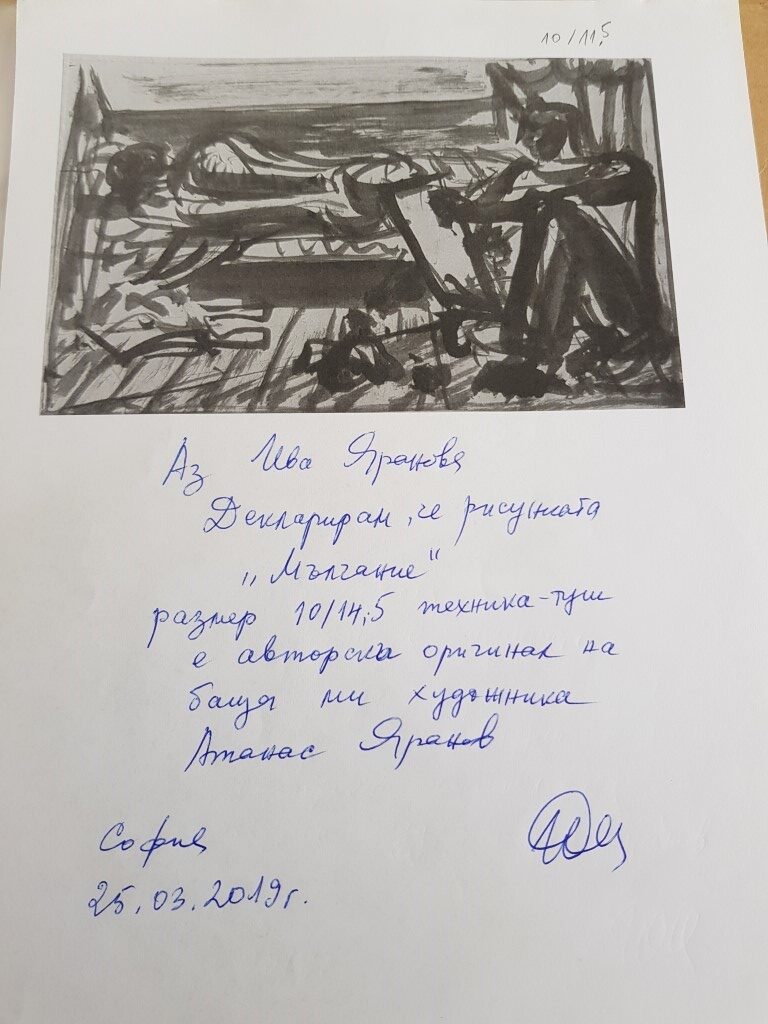 10/11,5
Аз Ива Яранова
Декларирам, че рисунката
„Мълчание"
размер 10/14,5 техника-туш
е авторски оригинал на
баща ми художника
Атанас Яранов
София
25.03.2019г.